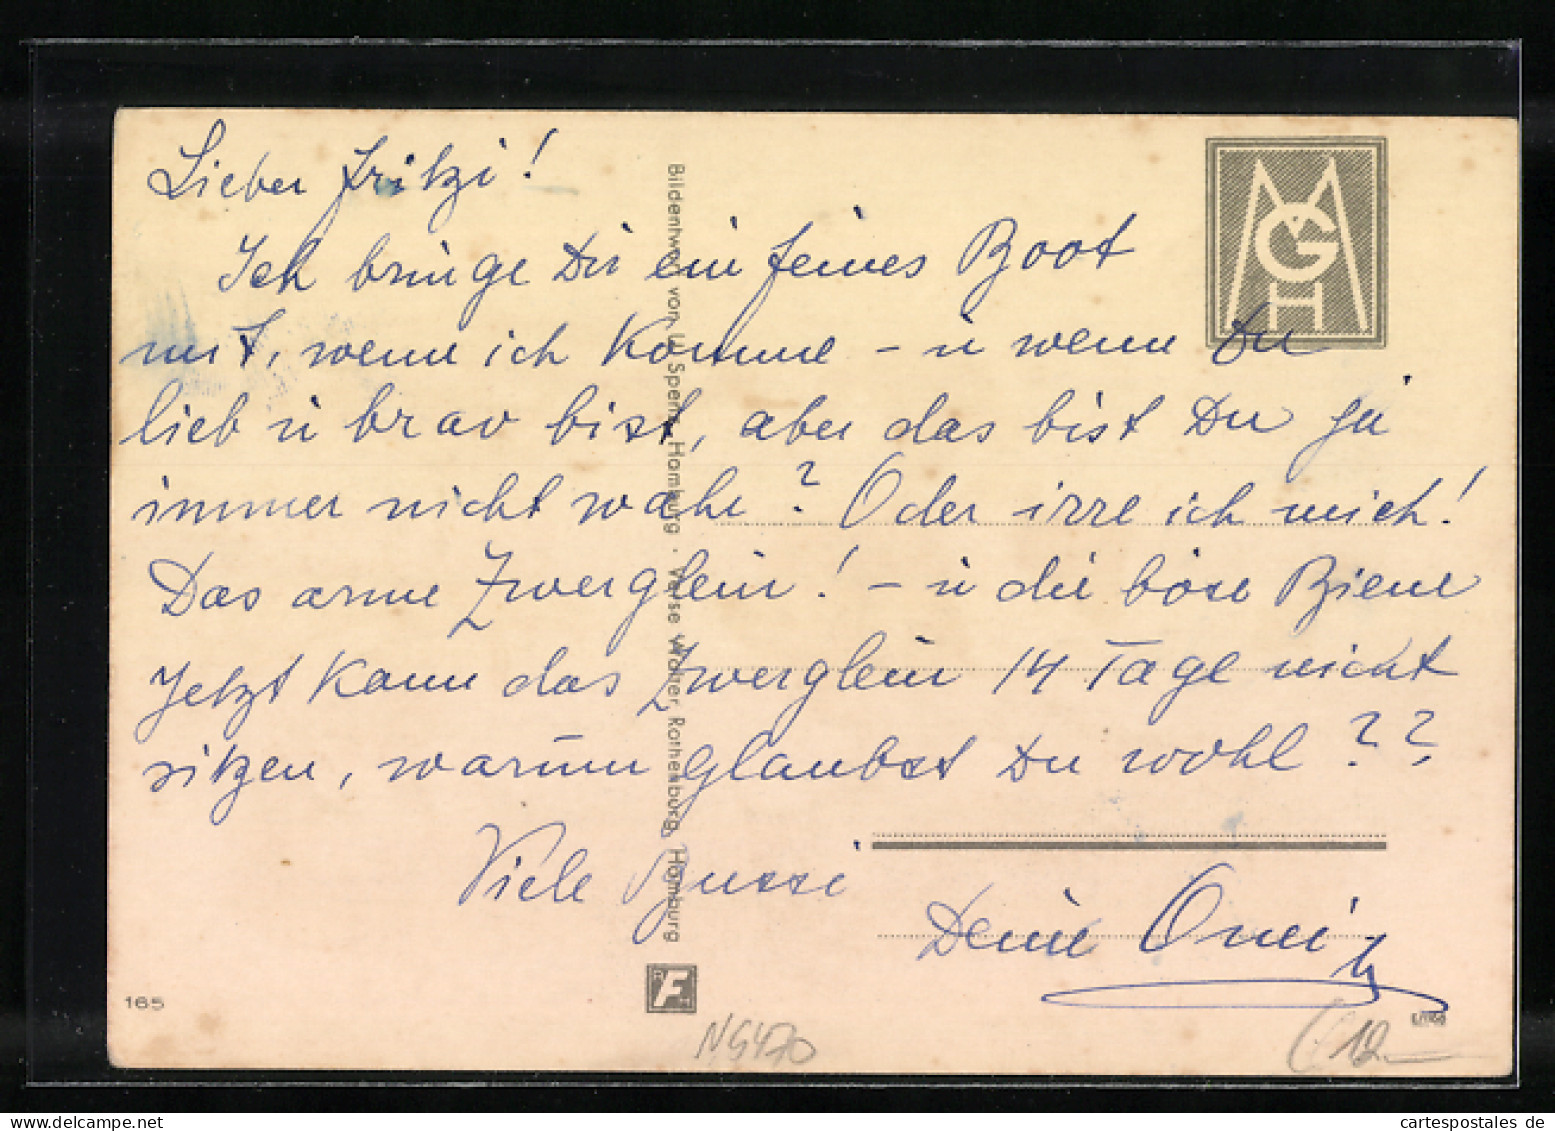 Lieber Fritzi!
Ich bringe Dir ein feines Boot
mit, wenn ich komme – u wenn Du
lieb u brav bist, aber das bist Du ja
immer nicht wahr? Oder irre ich mich!
Das arme Zwerglein! – u die böse Biene
Jetzt kann das Zwerglein 14 Tage nicht
sitzen, warum glaubst Du wohl??
Viele Bussi
Deine
Bildentwurf von Spern, Hamburg · Verse Walter Rothenburg, Hamburg
MGHM
F
165
NG470
12–
cartespostales de